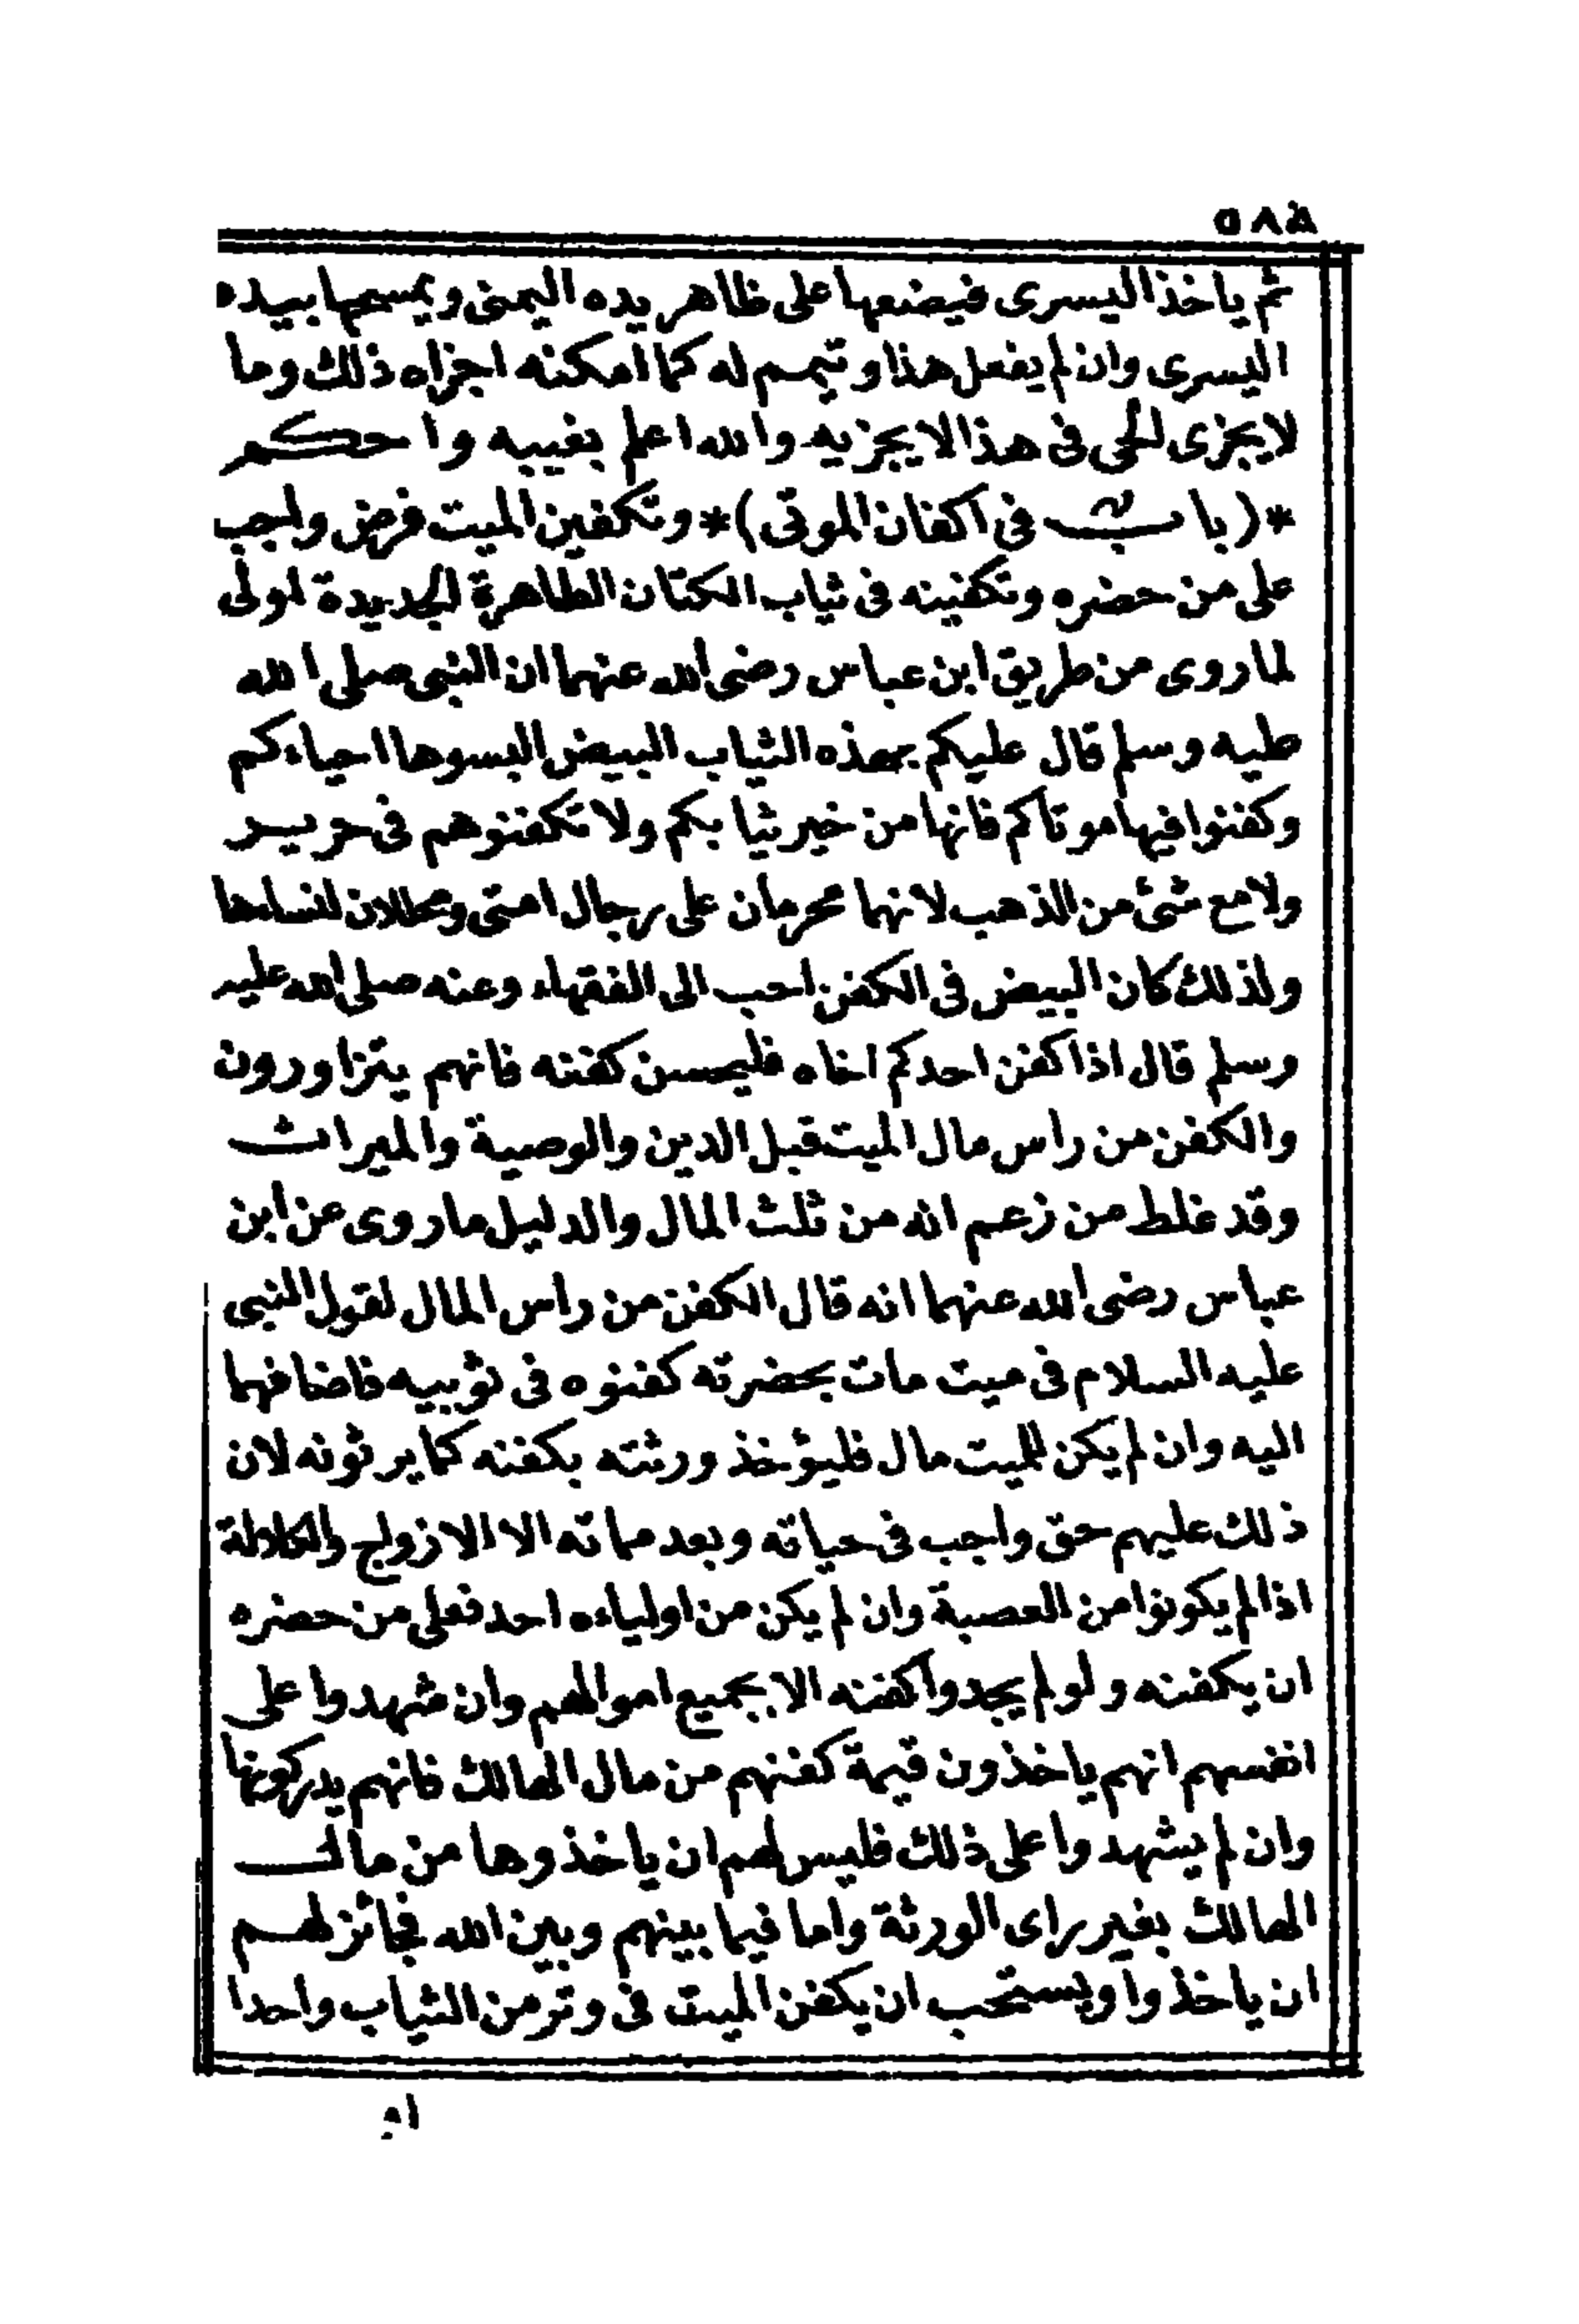 ٥٨٥
ثم ياخذ اليسرى فيضعها على ظاهر يده اليمنى ويمسحها بيده
اليسرى وان لم يفعل هذا وتيمم له كما امكنه اجزاه ذلك وما
لا يجزى الحى فى هذا لا يجزيه والله اعلم بغيبه واحكم
*(باب فى اكفان الموتى)* وتكفين الميت فرض واجب
على من حضره وتكفينه فى ثياب الكتان الطاهرة الجديدة اولى
لما روى من طريق ابن عباس رضى الله عنهما ان النبى صلى الله
عليه وسلم قال عليكم بهذه الثياب البيض البسوها احياءكم
وكفنوا فيها موتاكم فانها من خير ثيابكم ولا تكفنوهم فى حرير
ولا مع شئ من الذهب لانهما محرمان على رجال امتى ومحللان لنسائها
ولذلك كان البيض فى الكفن احب الى الفقهاء وعنه صلى الله عليه
وسلم قال اذا كفن احدكم اخاه فليحسن كفنه فانهم يتزاورون
والكفن من راس مال الميت قبل الدين والوصية والميراث
وقد غلط من زعم انه من ثلث المال والدليل ما روى عن ابن
عباس رضى الله عنهما انه قال الكفن من راس المال لقول النبى
عليه السلام فى ميت مات بحضرته كفنوه فى ثوبيه فاضافهما
اليه وان لم يكن للميت مال فليؤخذ ورثته بكفنه كما يرثونه لان
ذلك عليهم حق واجب فى حياته وبعد مماته الا الازواج والكلالة
اذا لم يكونوا من العصبة وان لم يكن من اولياءه احد فعلى من حضره
ان يكفنه ولو لم يجدوا كفنه الا بجميع اموالهم وان شهدوا على
انفسهم انهم ياخذون قيمة كفنهم من مال الهالك فانهم يدركونها
وان لم يشهدوا على ذلك فليس لهم ان ياخذوها من مال
الهالك بغير راى الورثة واما فيما بينهم وبين الله فجائز لهم
ان ياخذوا ويستحب ان يكفن الميت فى وتر من الثياب واحدا